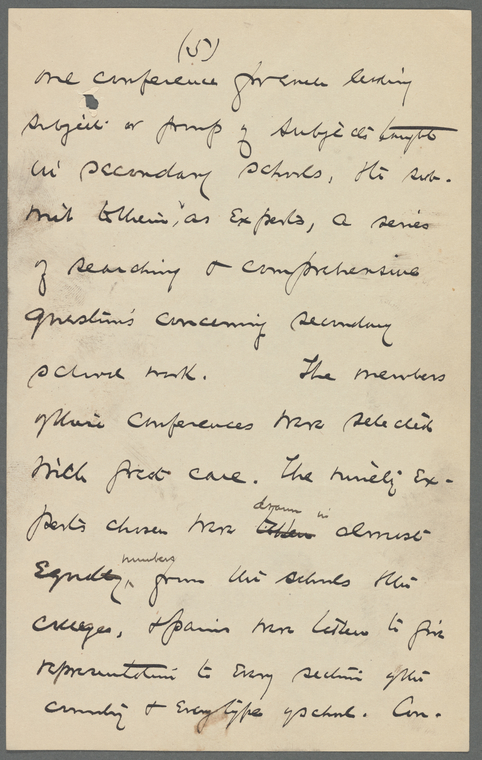 (5)
one conference for each leading
subject or group of subjects taught
in secondary schools, & to sub-
mit to them, as experts, a series
of searching & comprehensive
questions concerning secondary
school work. The members
of these conferences were selected
with great care. The ninety ex-
perts chosen were taken drawn in almost
equal numbers from the schools & the
colleges, & pains were taken to give
representation to every section of the
country & every type of school. Con-